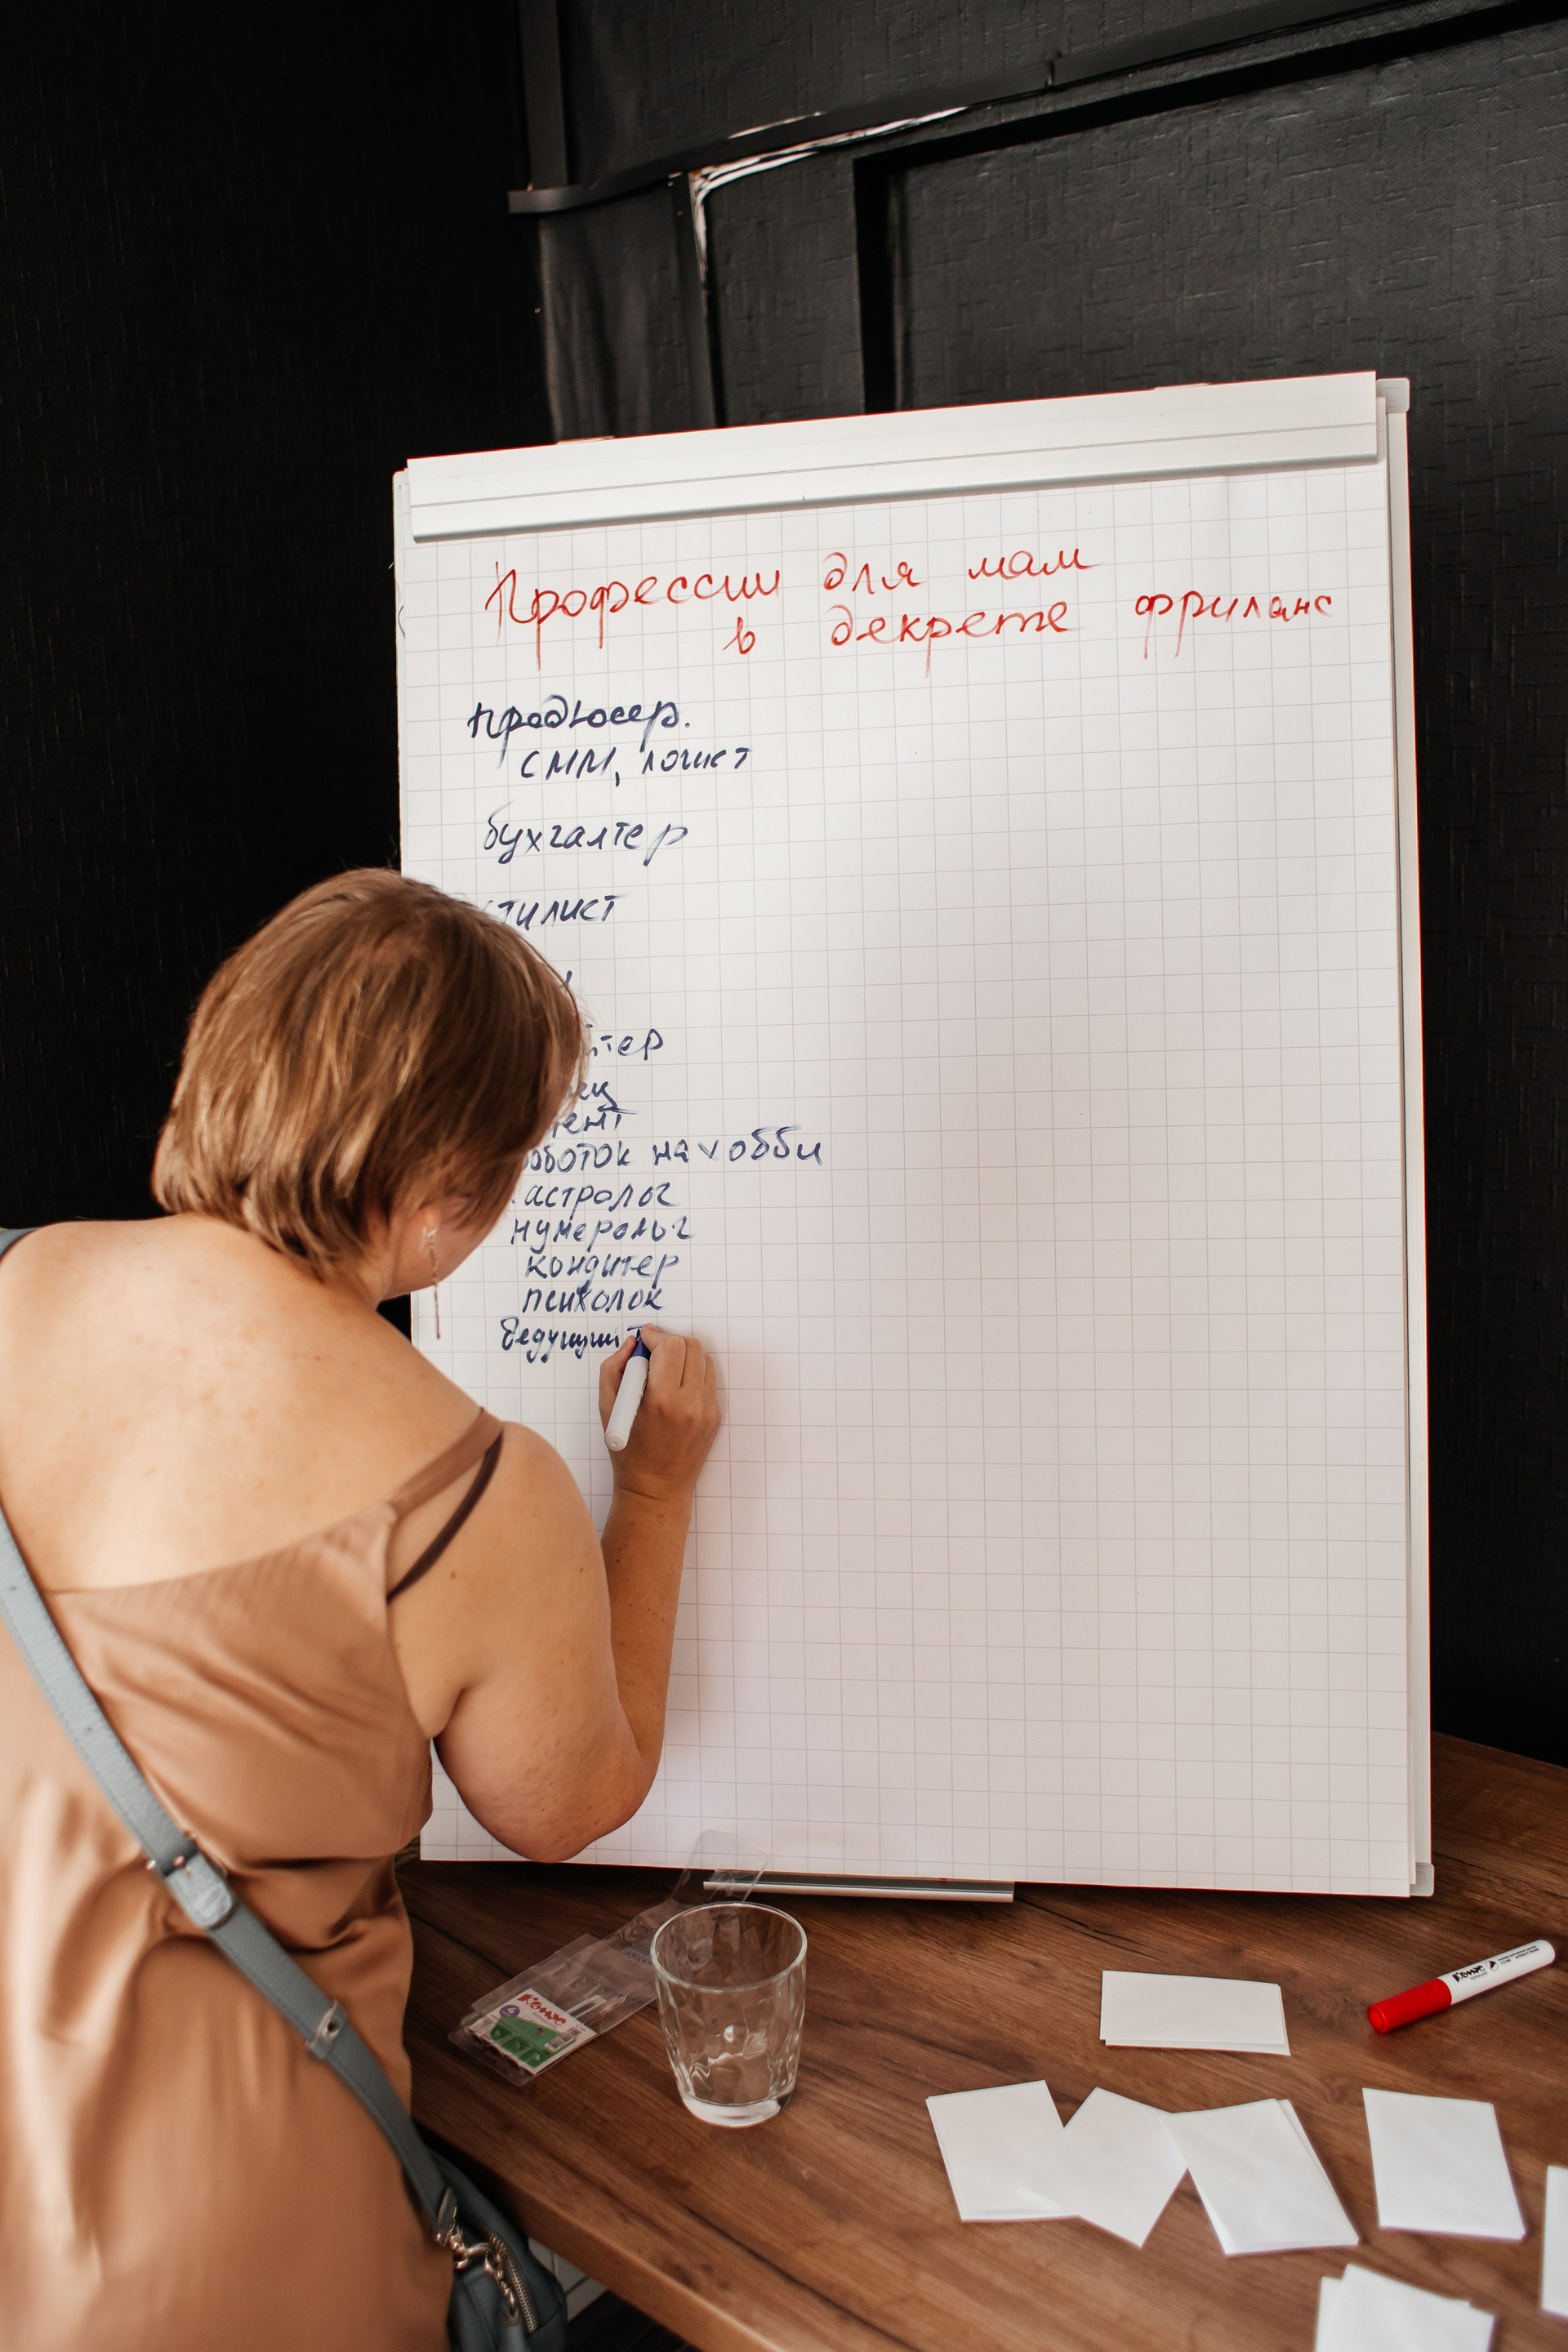 Профессии для мам
в декрете фриланс
продюсер.
СММ, логист
бухгалтер
стилист
на хобби
астролог
нумеролог
кондитер
психолок
Ведущий
Комус
Комус